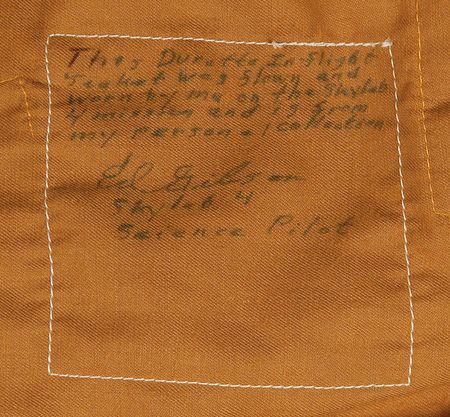 This Durette In-flight
Jacket was flown and
worn by me on the Skylab
4 mission and is from
my personal collection
Ed Gibson
Skylab 4
Science Pilot